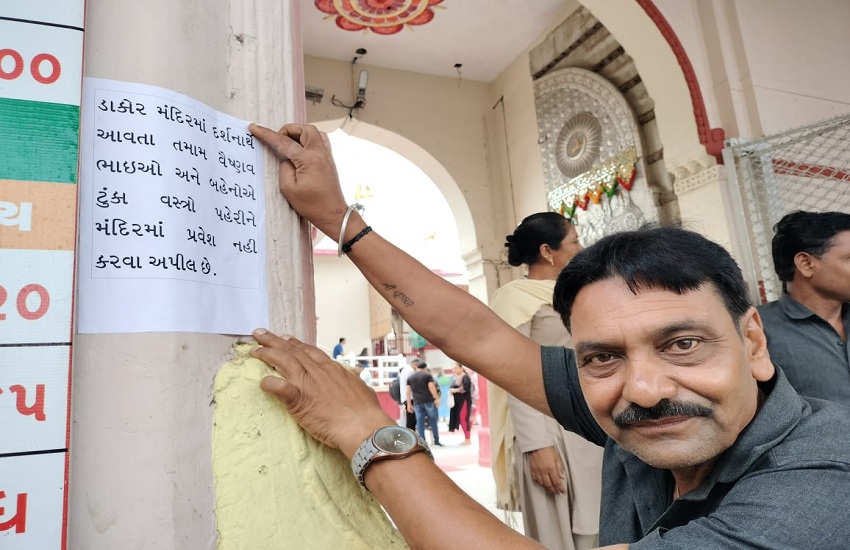 ડાકોર મંદિરમાં દર્શનાર્થે
આવતા તમામ વૈષ્ણવ
ભાઇઓ અને બહેનોએ
ટુંકા વસ્ત્રો પહેરીને
મંદિરમાં પ્રવેશ નહી
કરવા અપીલ છે.
૦૦
૨૦
૪૫